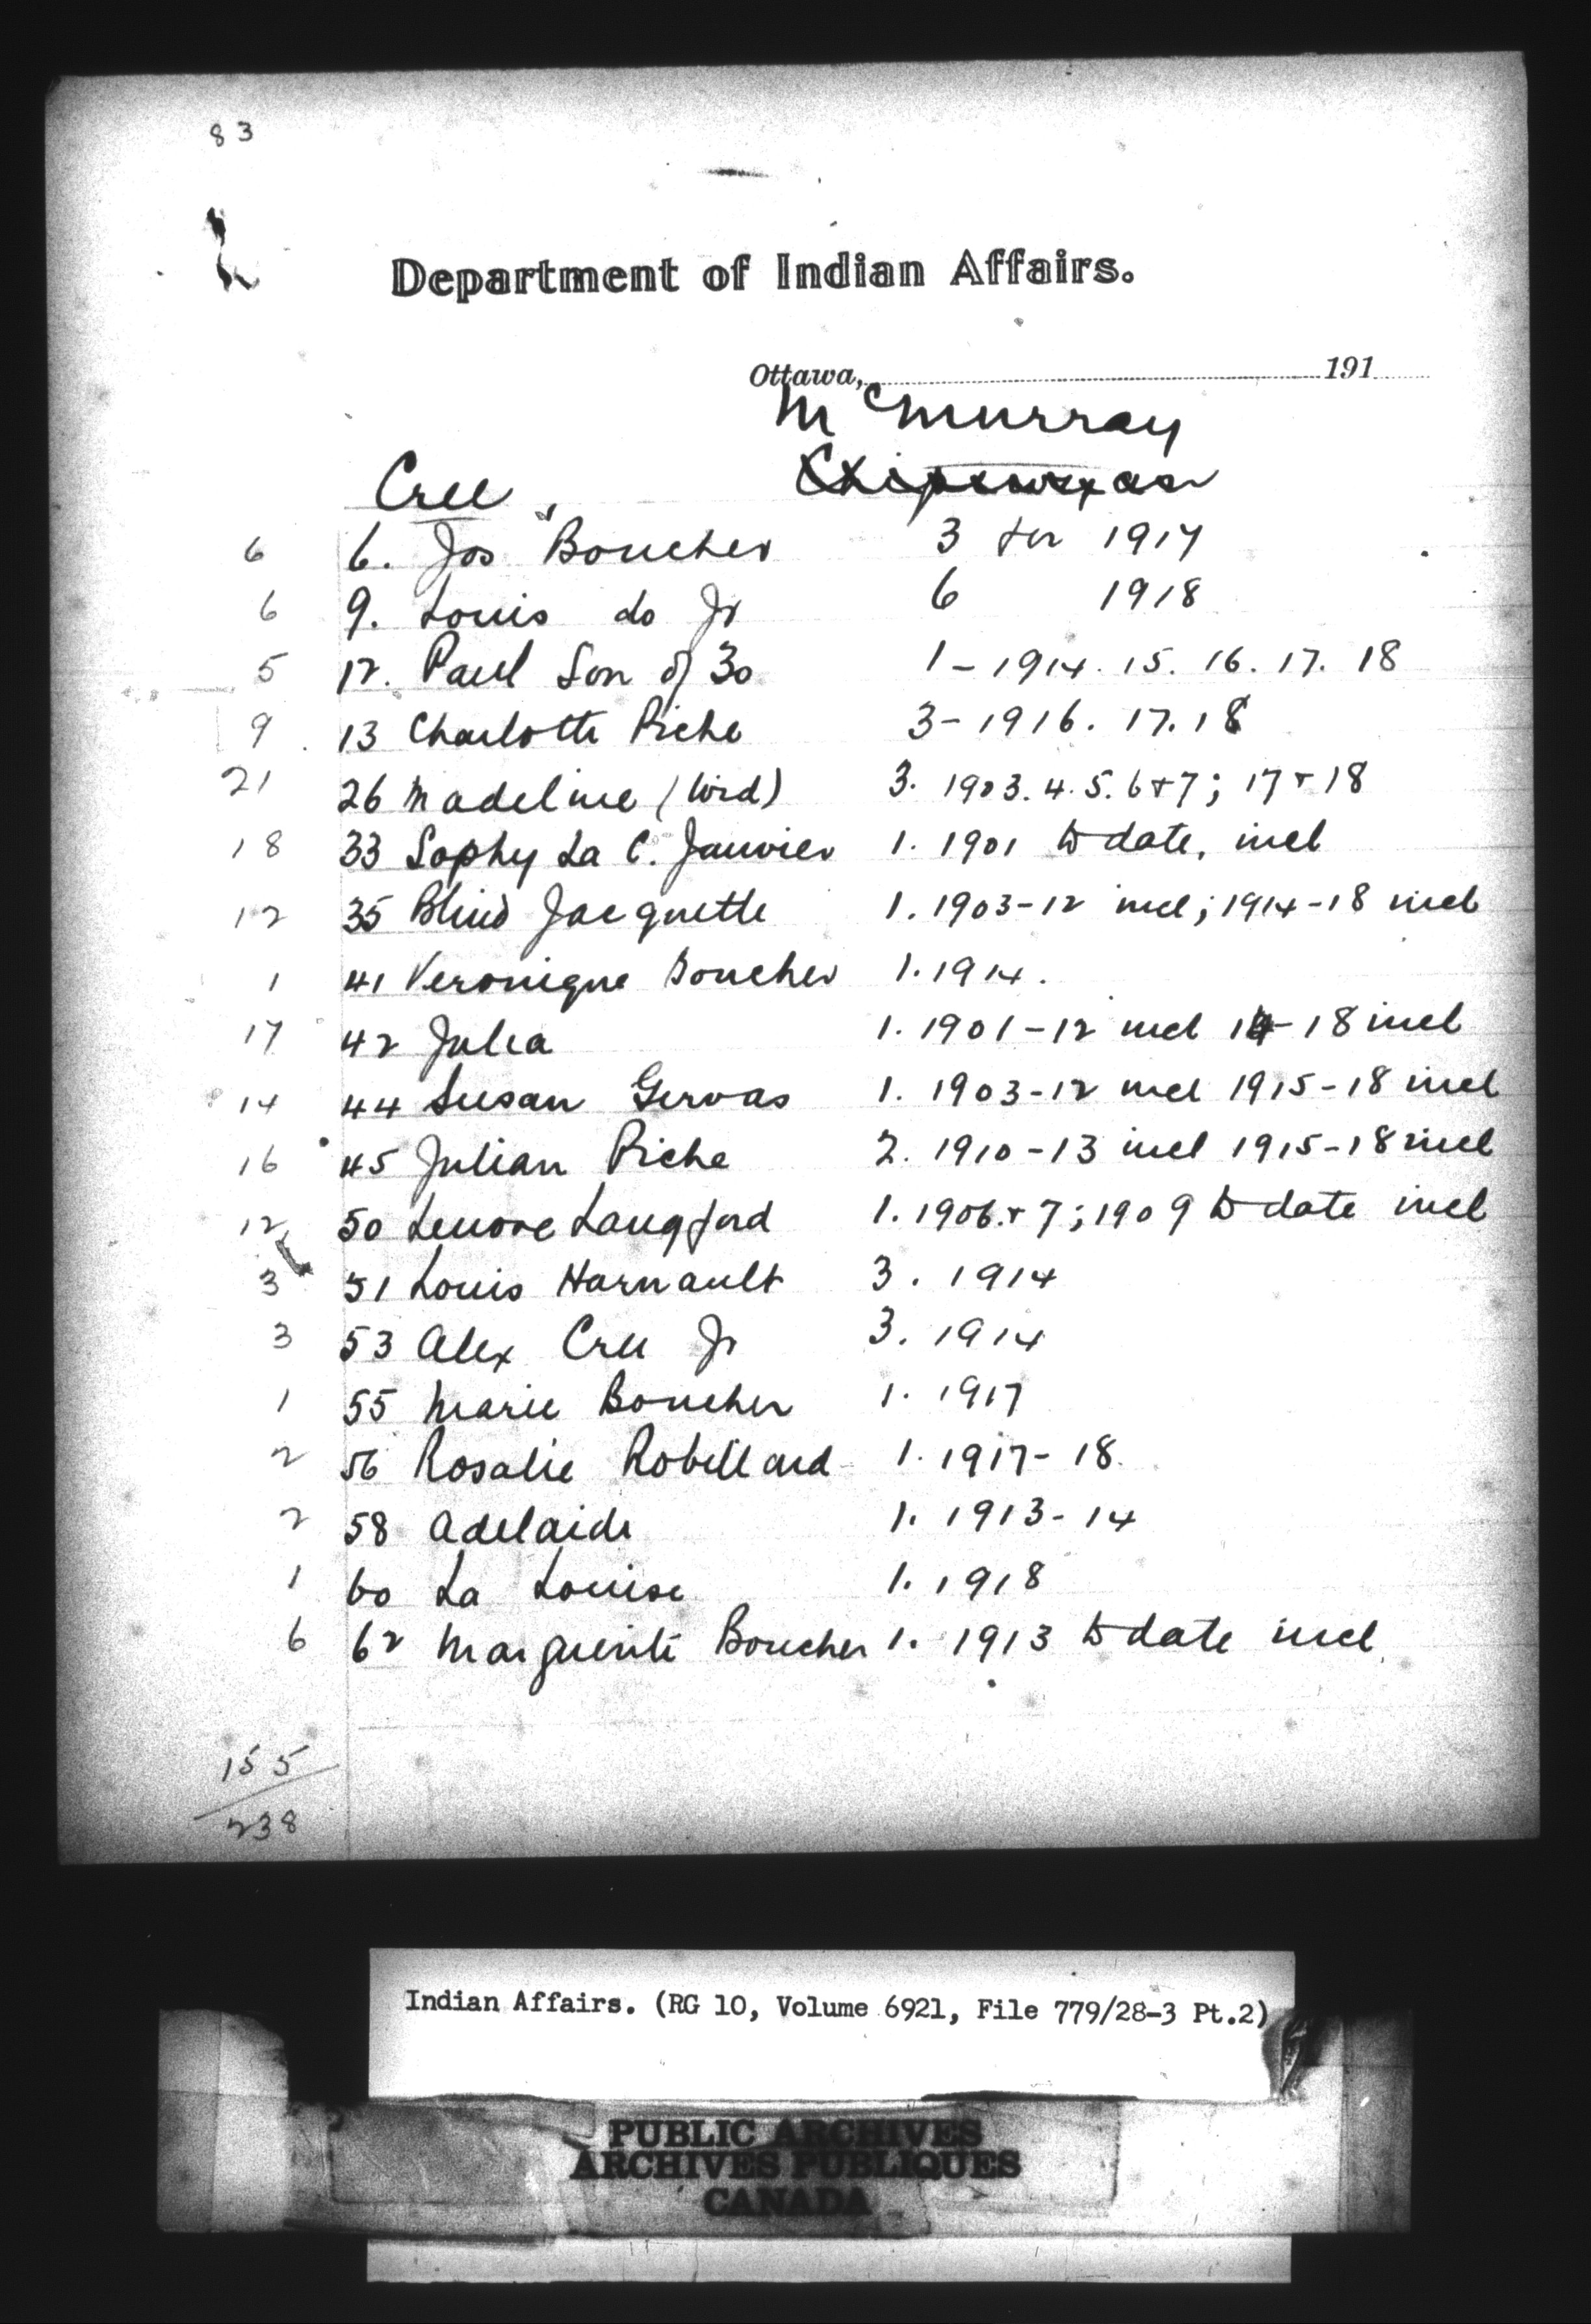 83
Department of Indian Affairs.
Ottawa, 191
McMurray
Cree Chipewyan
6 6. Jos Boucher 3 for 1917
6 9. Louis do Jr 6 1918
5 12. Paul Son of 30 1 - 1914. 15. 16. 17. 18
9 13 Charlotte Piche 3 - 1916. 17. 18
21 26 Madeline (Wid) 3. 1903. 4. 5. 6 + 7; 17 + 18
18 33 Sophy La C. Janvier 1. 1901 to date, incl
12 35 Blind Jacquette 1. 1903-12 incl; 1914-18 incl
1 41 Veronique Boucher 1. 1914.
17 42 Julia 1. 1901-12 incl 14-18 incl
14 44 Susan Gervas 1. 1903-12 incl 1915-18 incl
16 45 Julian Piche 2. 1910-13 incl 1915-18 incl
12 50 Lenore Langford 1. 1906. + 7; 1909 to date incl
3 51 Louis Harnault 3. 1914
3 53 Alex Cree Jr 3. 1914
1 55 Marie Boucher 1. 1917
2 56 Rosalie Robillard 1. 1917-18.
2 58 Adelaide 1. 1913-14
1 60 La Louise 1. 1918
6 62 Marguerite Boucher 1. 1913 to date incl.
155
238
Indian Affairs. (RG 10, Volume 6921, File 779/28-3 Pt.2)
PUBLIC ARCHIVES
ARCHIVES PUBLIQUES
CANADA